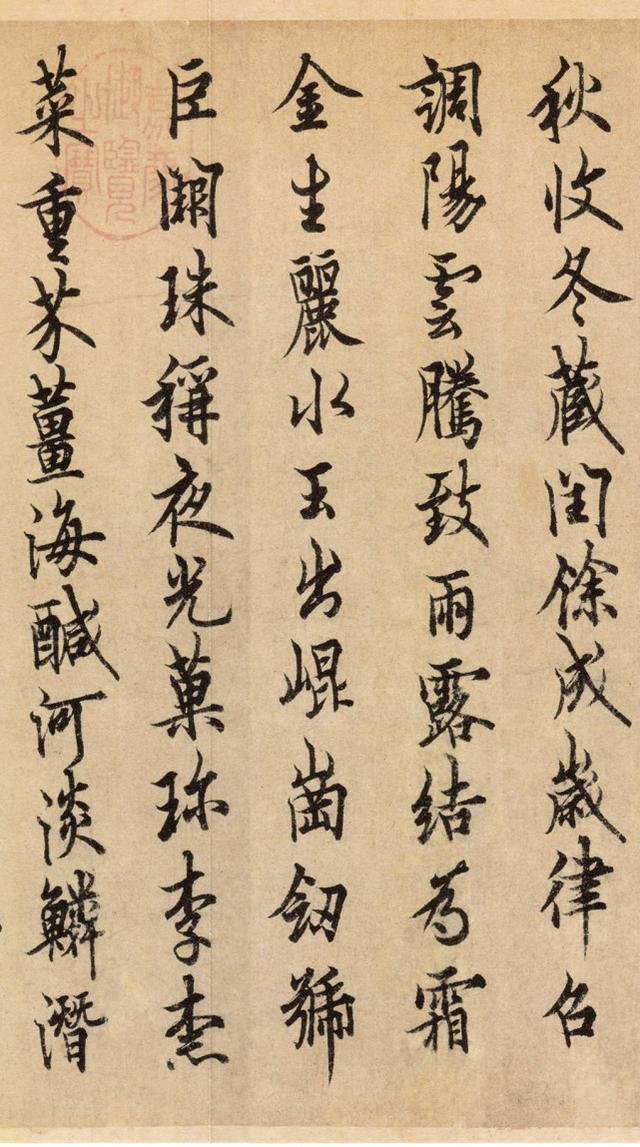 秋收冬藏閏餘成歲律召
調陽雲騰致雨露結為霜
金生麗水玉出崐崗釰號
巨闕珠稱夜光菓珎李柰
菜重芥薑海醎河淡鱗潛